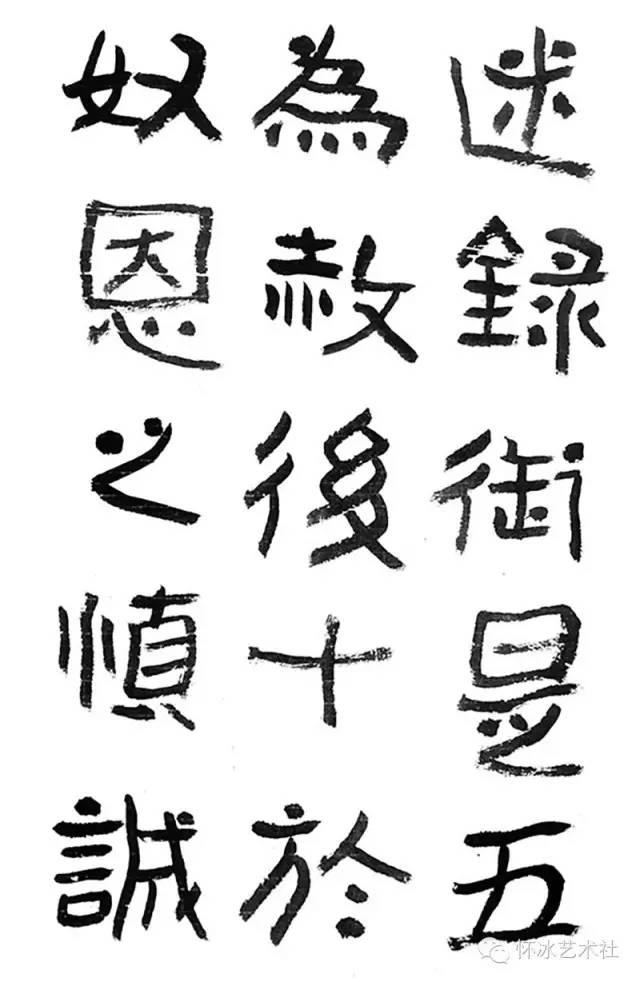 述錄御是五
為赦後十於
奴恩之慎誠
怀冰艺术社